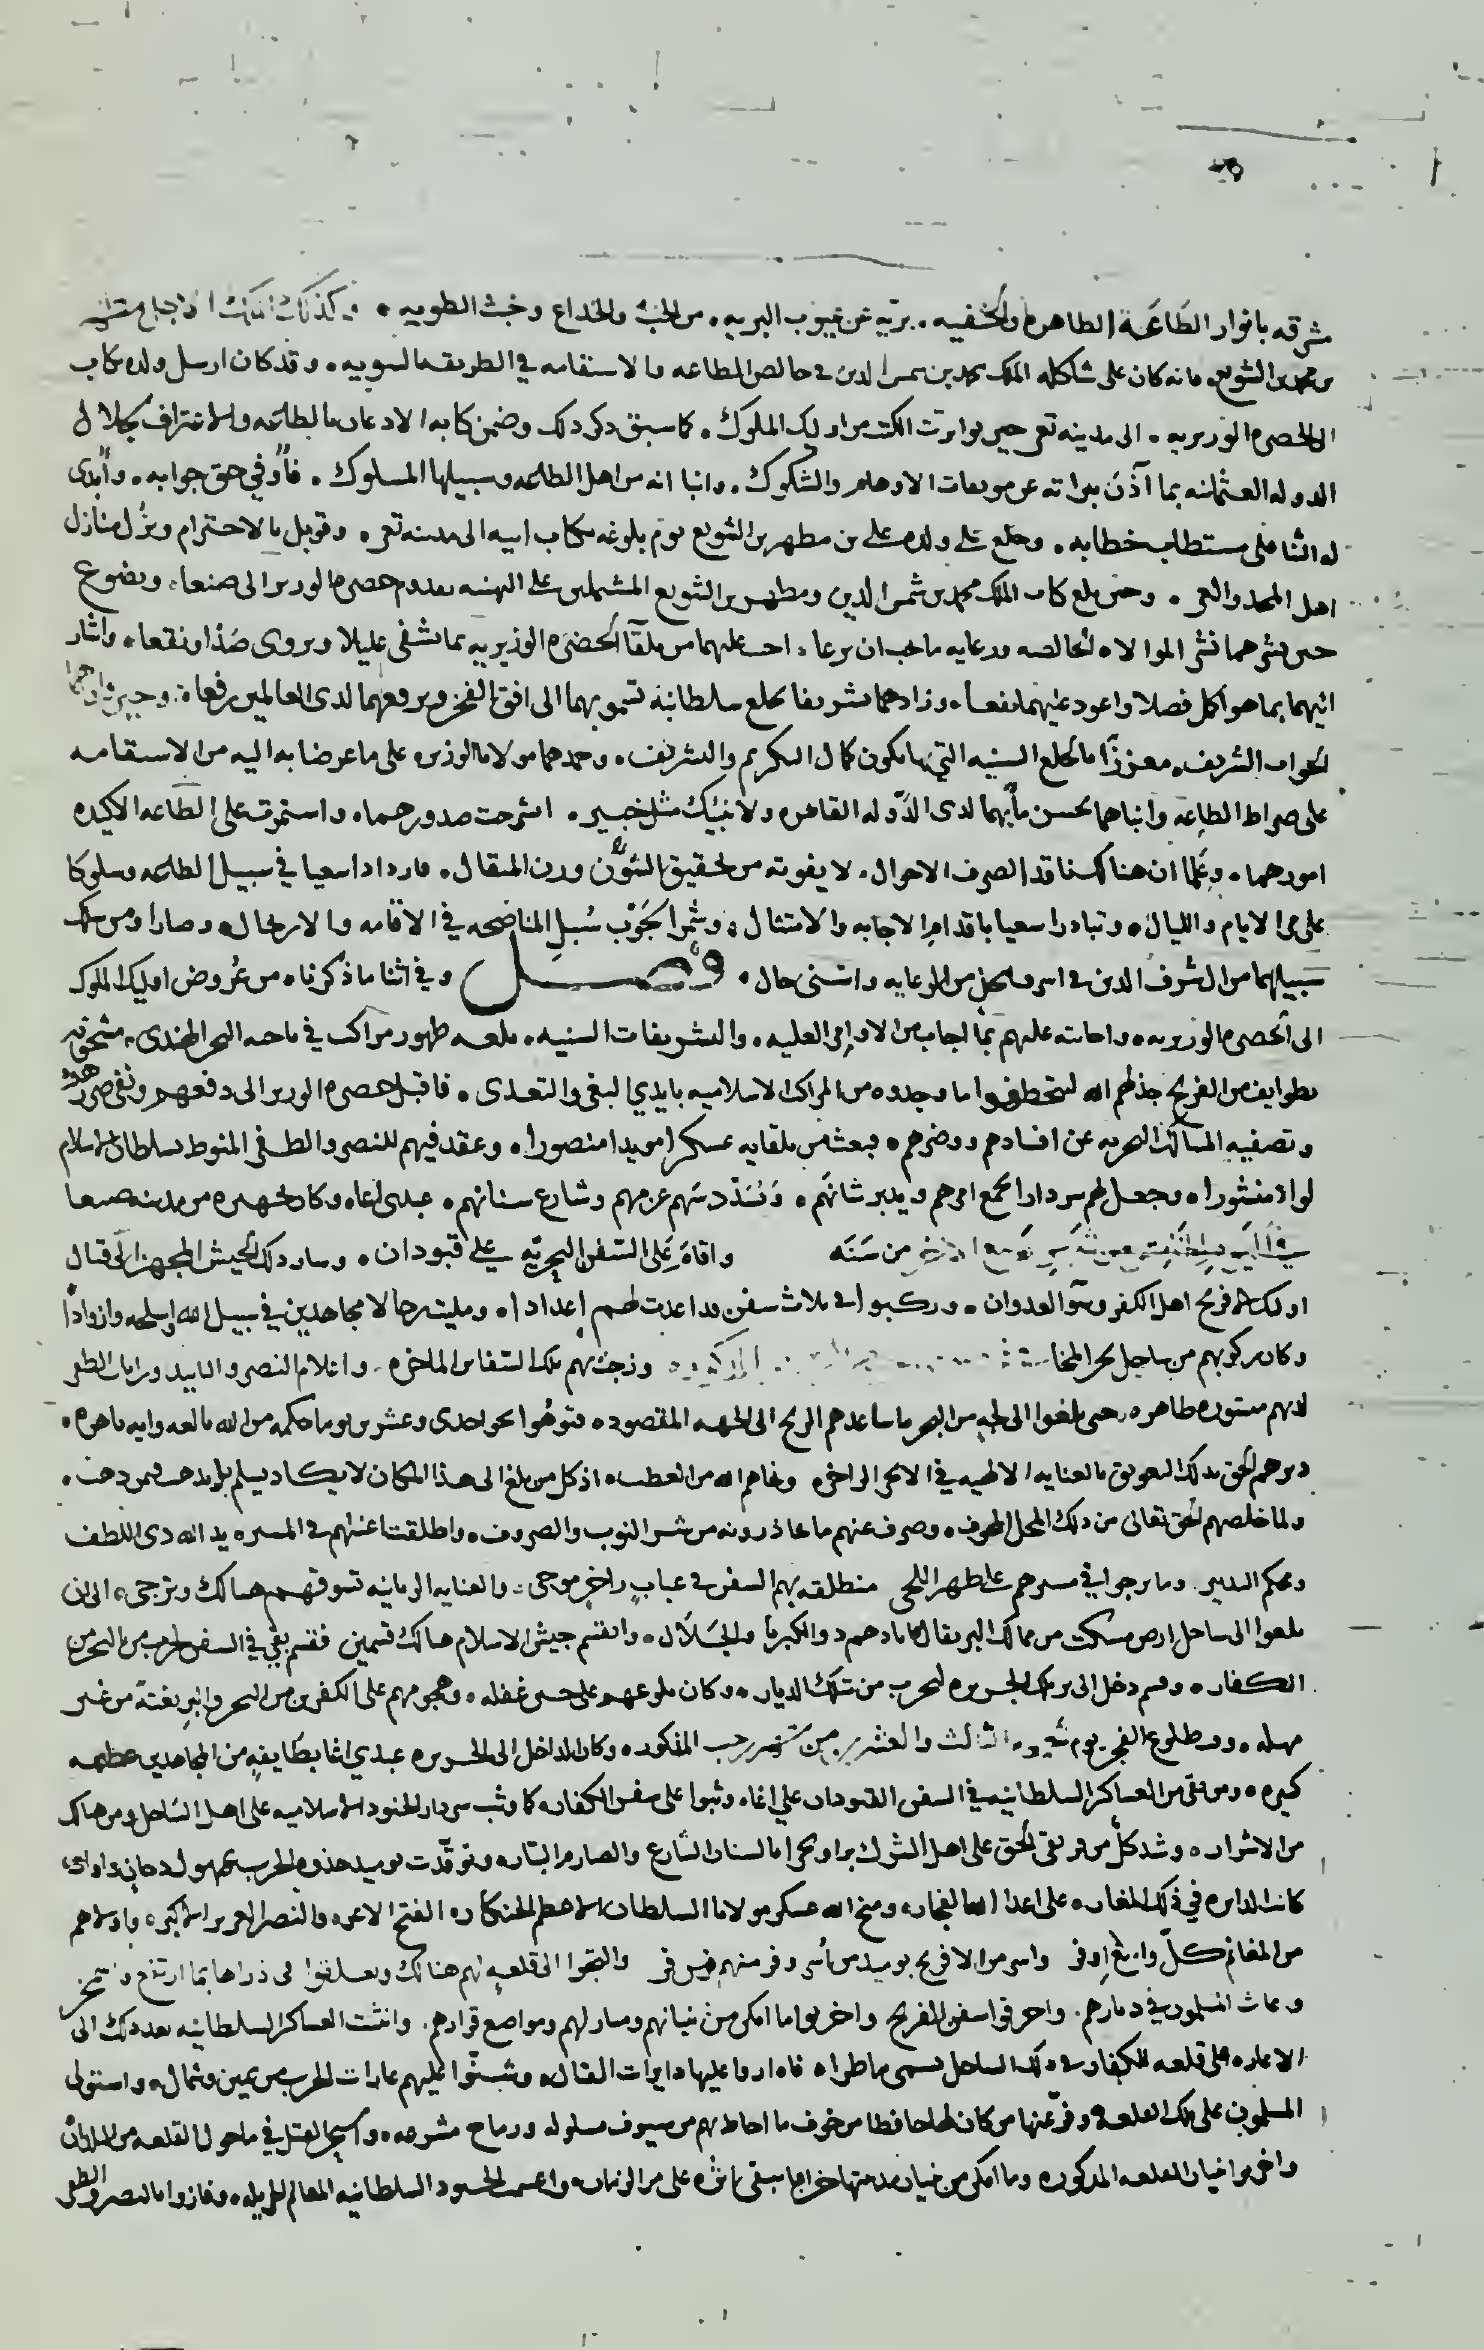 مشرقه بانوار الطاعة الظاهره والخفيه . بريه عن عيوب البريه . من الخب والخداع وخبث الطويه . وكذلك
من محمد بن الشويع . فانه كان على شاكله الملك محمد بن شمس الدين في خالص الطاعه والاستقامه في الطريقه السويه . وقد كان ارسل ولده بكتاب
الى الحضره الوزيريه . الى مدينه تعز حين تواترت الكتب من اوليك الملوك . كما سبق ذكر ذلك وضمن كتابه الاذعان بالطاعه والاعتراف بجلال
الدوله العثمانيه بما آذن ببراته عن موبقات الاوهام والشكوك . وانبا انه من اهل الطاعه وسبيلها المسلوك . فأوفي حق جوابه . وأبدى
له الثنا على مستطاب خطابه . وخلع على ولده على بن مطهر بن الشويع يوم بلوغه بكتاب ابيه الى مدينه تعز . وقوبل بالاحترام ونزل منازل
اهل المجد والعز . وحين بلغ كتاب الملك محمد بن شمس الدين ومطهر بن الشويع المشتملين على التهنيه بقدوم حضره الوزير الى صنعا . وتضوع
حين نشرهما نشر الموالاه الخالصه ورعايه ما يجب ان يرعا . اجيب عليهما من تلقآ الحضره الوزيريه بما يشفى عليلا ويروى صدا ونقعا . واشار
اليهما بما هو اكمل فضلا واعود عليهما نفعا . وزادهما تشريفا بخلع سلطانية تسمو بهما الى افق الفخر ويرفعهما لدى العالمين رفعا . وحين وافاهما
الجواب الشريف . معززًا بالخلع السنيه التي بها يكون كمال التكريم والتشريف . وحمدهما مولانا الوزير على ما عرضا به اليه من الاستقامه
على صراط الطاعه وانباهما بحسن مأبهما لدى الدوله القاهره ولا ينبيك مثل خبير . انشرحت صدورهما . واستمرت على الطاعه الاكيده
امورهما . وعلما ان هنالك ناقد الصرف الاحوال . لا يفوته من تحقيق الشؤن وزن المثقال . فازدادا سعيا في سبيل الطاعه وسلوكا
على مر الايام والليال . وتبادرا سعيا باقدام الاجابه والامتثال . وشمرا لجوب سبل المناصحه في الاقامه والارتحال . وصارا ومن سلك
سبيلهما من ال شرف الدين في اشرف محل من الرعايه واسنى حال . فصل وفي اثنا ما ذكرناه من عروض اوليك الملوك
الى الحضره الوزيريه . واجابته عليهم بما اجاب من الاوامر العليه . والتشريفات السنيه . بلغه ظهور مراكب في ناحيه البحر الهندى . مشحونه
بطوايف من الفرنج خذلهم الله ليتخطفوا ما وجدوه من المراكب الاسلاميه بايدي البغي والتعدى . فاقبل حضره الوزير الى دفعهم ونفى ضررهم
وتصفيه المسالك البحريه عن افسادهم ووضرهم . فبعث من تلقايه عسكرا مويدا منصورا . وعقد فيهم للنصر والظفر المنوط بسلطان الاسلام
لوا منشورا . وجعل لهم سردارا يجمع امرهم ويدبر شانهم . ويسدد سهم عزمهم وشارع سنانهم . عبدى اغا . وكان تجهيزه من مدينه صنعا
من سنه واقام على السفن البحريه على قبودان . وسار ذلك الجيش المجهز الى قتال
اوليك الافرنج اهل الكفر والعدوان . وركبوا في ثلاث سفن قد اعدت لهم اعدادا . ومليت رجالا مجاهدين في سبيل الله واسلحه وازوادا
وكان ركوبهم من ساحل بحر المخا وزجت بهم تلك السفاين الماخره . واعلام النصر والتاييد ورايات الظفر
لديهم منشوره ظاهره . حتى بلغوا الى لجه من البحر ما ساعدهم الريح الى الجهه المقصوده . فتوهوا نحو احدى وعشرين يوما حكمه من الله بالغه وايه باهره .
ونجاهم الله من العطب . اذ كل من بلغ الى هذا المكان لا يكاد يسلم بل يذهب فيمن ذهب .
ولما خلصهم الحق تعالى من ذلك المحل المخوف . وصرف عنهم ما حاذرونه من شر النوب والصروف . واطلقت اعنتهم في المسير يد الله ذى اللطف
ومحكم التدبير . وما برحوا في مسيرهم على ظهر اللجى منطلقه بهم السفن في عباب زاخر موجى . والعنايه الربانيه تسوقهم هنالك وتزجى . الى ان
بلغوا الى ساحل ارض مسكت من ممالك البرتقال ابادهم ذو الكبريا والجلال . وانقسم جيش الاسلام هنالك قسمين فقسم بقي في السفن لحرب من بالبحر من
الكفار . وقسم دخل الى بر تلك الجزيره لحرب من بتلك الديار . وكان بلوغهم على حين غفله . وهجومهم على الكفره من البحر والبر بغتة من غير
مهله . وقت طلوع الفجر يوم الثالث والعشرين من شهر رجب المذكور . وكان الداخل الى الجزيره عبدي اغا بطايفه من المجاهدين عظيمه
كبيره . ومن بقى من العساكر السلطانيه في السفن القبودان علي اغا . وثبوا على سفن الكفار . كما وثب سردار الجنود الاسلاميه على اهل الساحل ومن هنالك
من الاشرار . وشد كل من فريقى الحق على اهل الشرك برا وبحرا بالسنان الشارع والصارم البتار . وتوقدت يوميذ جذوه الحرب
كانت الدايره في تلك المغار . على اعدا الله الفجار . ومنح الله عسكر مولانا السلطان الاعظم الخنكار . الفتح الاغر . والنصر العزيز الاكبر . وافاهم
من المغانم كل وافر اوفر واسر من الافرنج يوميذ من أسر وفر منهم من فر والتجوا الى قلعه لهم هنالك وتعلقوا في ذراها
وعاث المسلمون في ديارهم . واحرقوا سفن الفرنج واخربوا ما امكن من بنيانهم ومنازلهم ومواضع قرارهم . وانثنت العساكر السلطانيه بعد ذلك الى
الاغاره على قلعه للكفار في ذلك الساحل تسمى مطرا . فاداروا عليها دايرات القتال . وشنوا عليهم غارات الحرب من يمين وشمال . واستولى
المسلمون على تلك القلعه . وفر عنها من كان لها حافظا من خوف ما احاط بهم من سيوف مسلوله ورماح مشرعه . القتل في ما حول القلعه من البلدان
واخربوا بنيان القلعه المذكوره وما امكن من بنيان مدينتها خرابا يبقى اثره على مر الزمان . السلطانيه المغانم الجزيله . وفازوا بالنصر والظفر